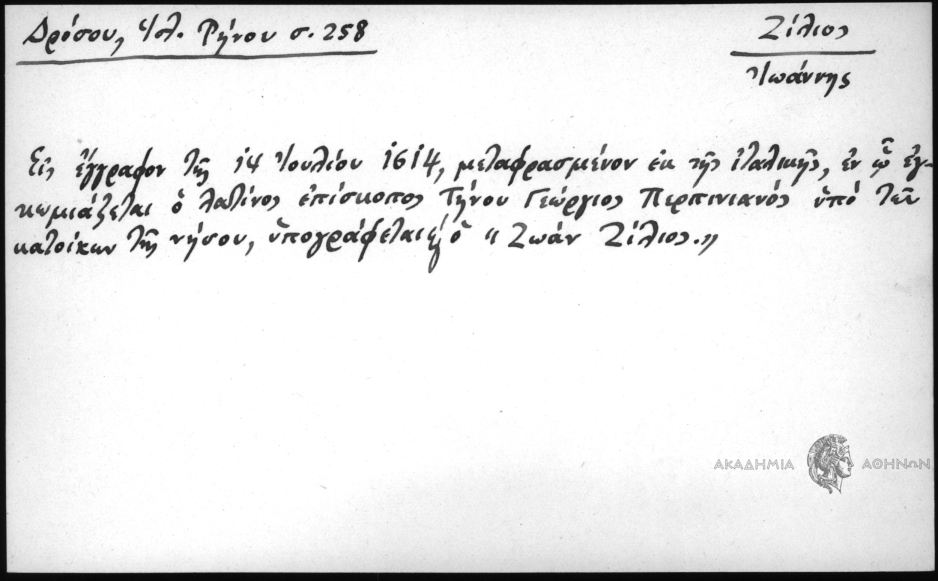 Δρόσου, Ἱστ. Τήνου σ. 258
Ζίλιος
Ἰωάννης
Εἰς ἔγγραφον τῆς 14 Ἰουλίου 1614, μεταφρασμένον ἐκ τῆς ἰταλικῆς, ἐν ᾧ ἐγ-
κωμιάζεται ὁ λατῖνος ἐπίσκοπος Τήνου Γεώργιος Περπινιανός ὑπό τῶν
κατοίκων τῆς νήσου, ὑπογράφεται καί ὁ « Ζωάν Ζίλιος.»
ΑΚΑΔΗΜΙΑ ΑΘΗΝΩΝ